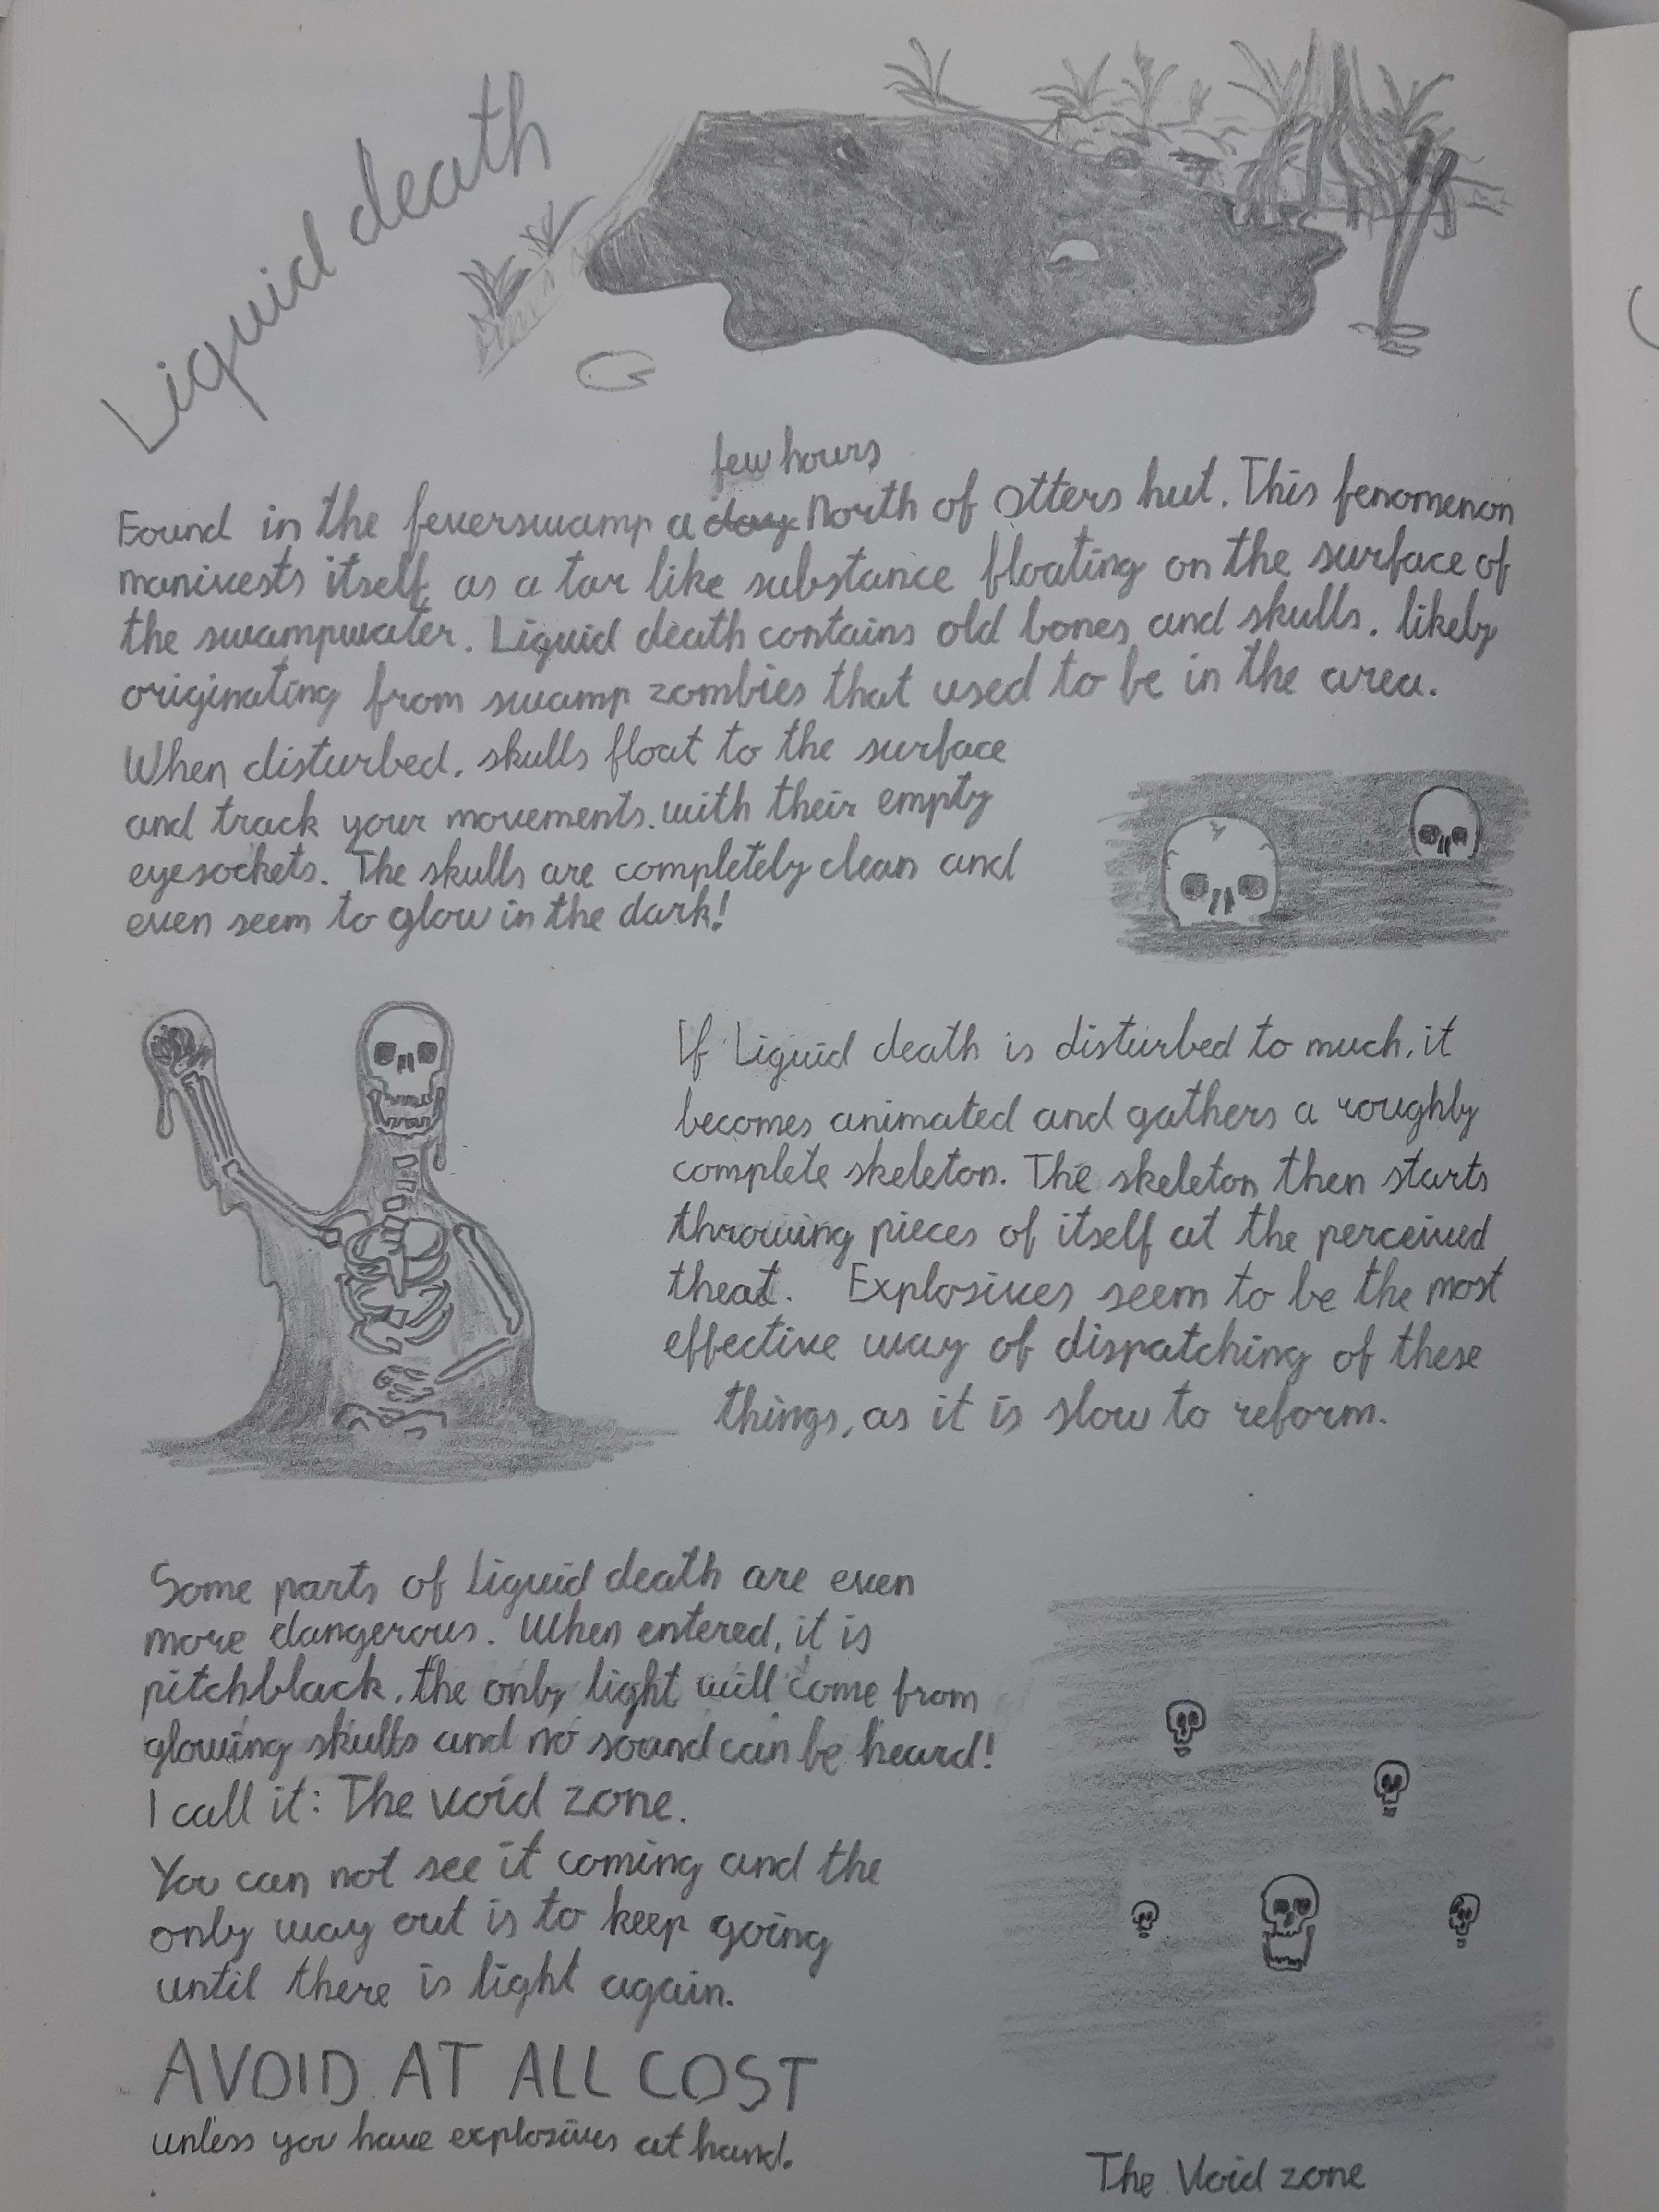 Liquid death
few hours
Found in the feverswamp a day North of Otters hut. This fenomenon
manivests itself as a tar like substance floating on the surface of
the swampwater. Liquid death contains old bones and skulls, likely
originating from swamp zombies that used to be in the area.
When disturbed, skulls float to the surface
and track your movements with their empty
eyesockets. The skulls are completely clean and
even seem to glow in the dark!
If Liquid death is disturbed to much, it
becomes animated and gathers a roughly
complete skeleton. The skeleton then starts
throwing pieces of itself at the perceived
theat. Explosives seem to be the most
effective way of dispatching of these
things, as it is slow to reform.
Some parts of liquid death are even
more dangerous. When entered, it is
pitchblack, the only light will come from
glowing skulls and no sound can be heard!
I call it: The void zone.
You can not see it coming and the
only way out is to keep going
until there is light again.
AVOID AT ALL COST
unless you have explosives at hand.
The Void zone